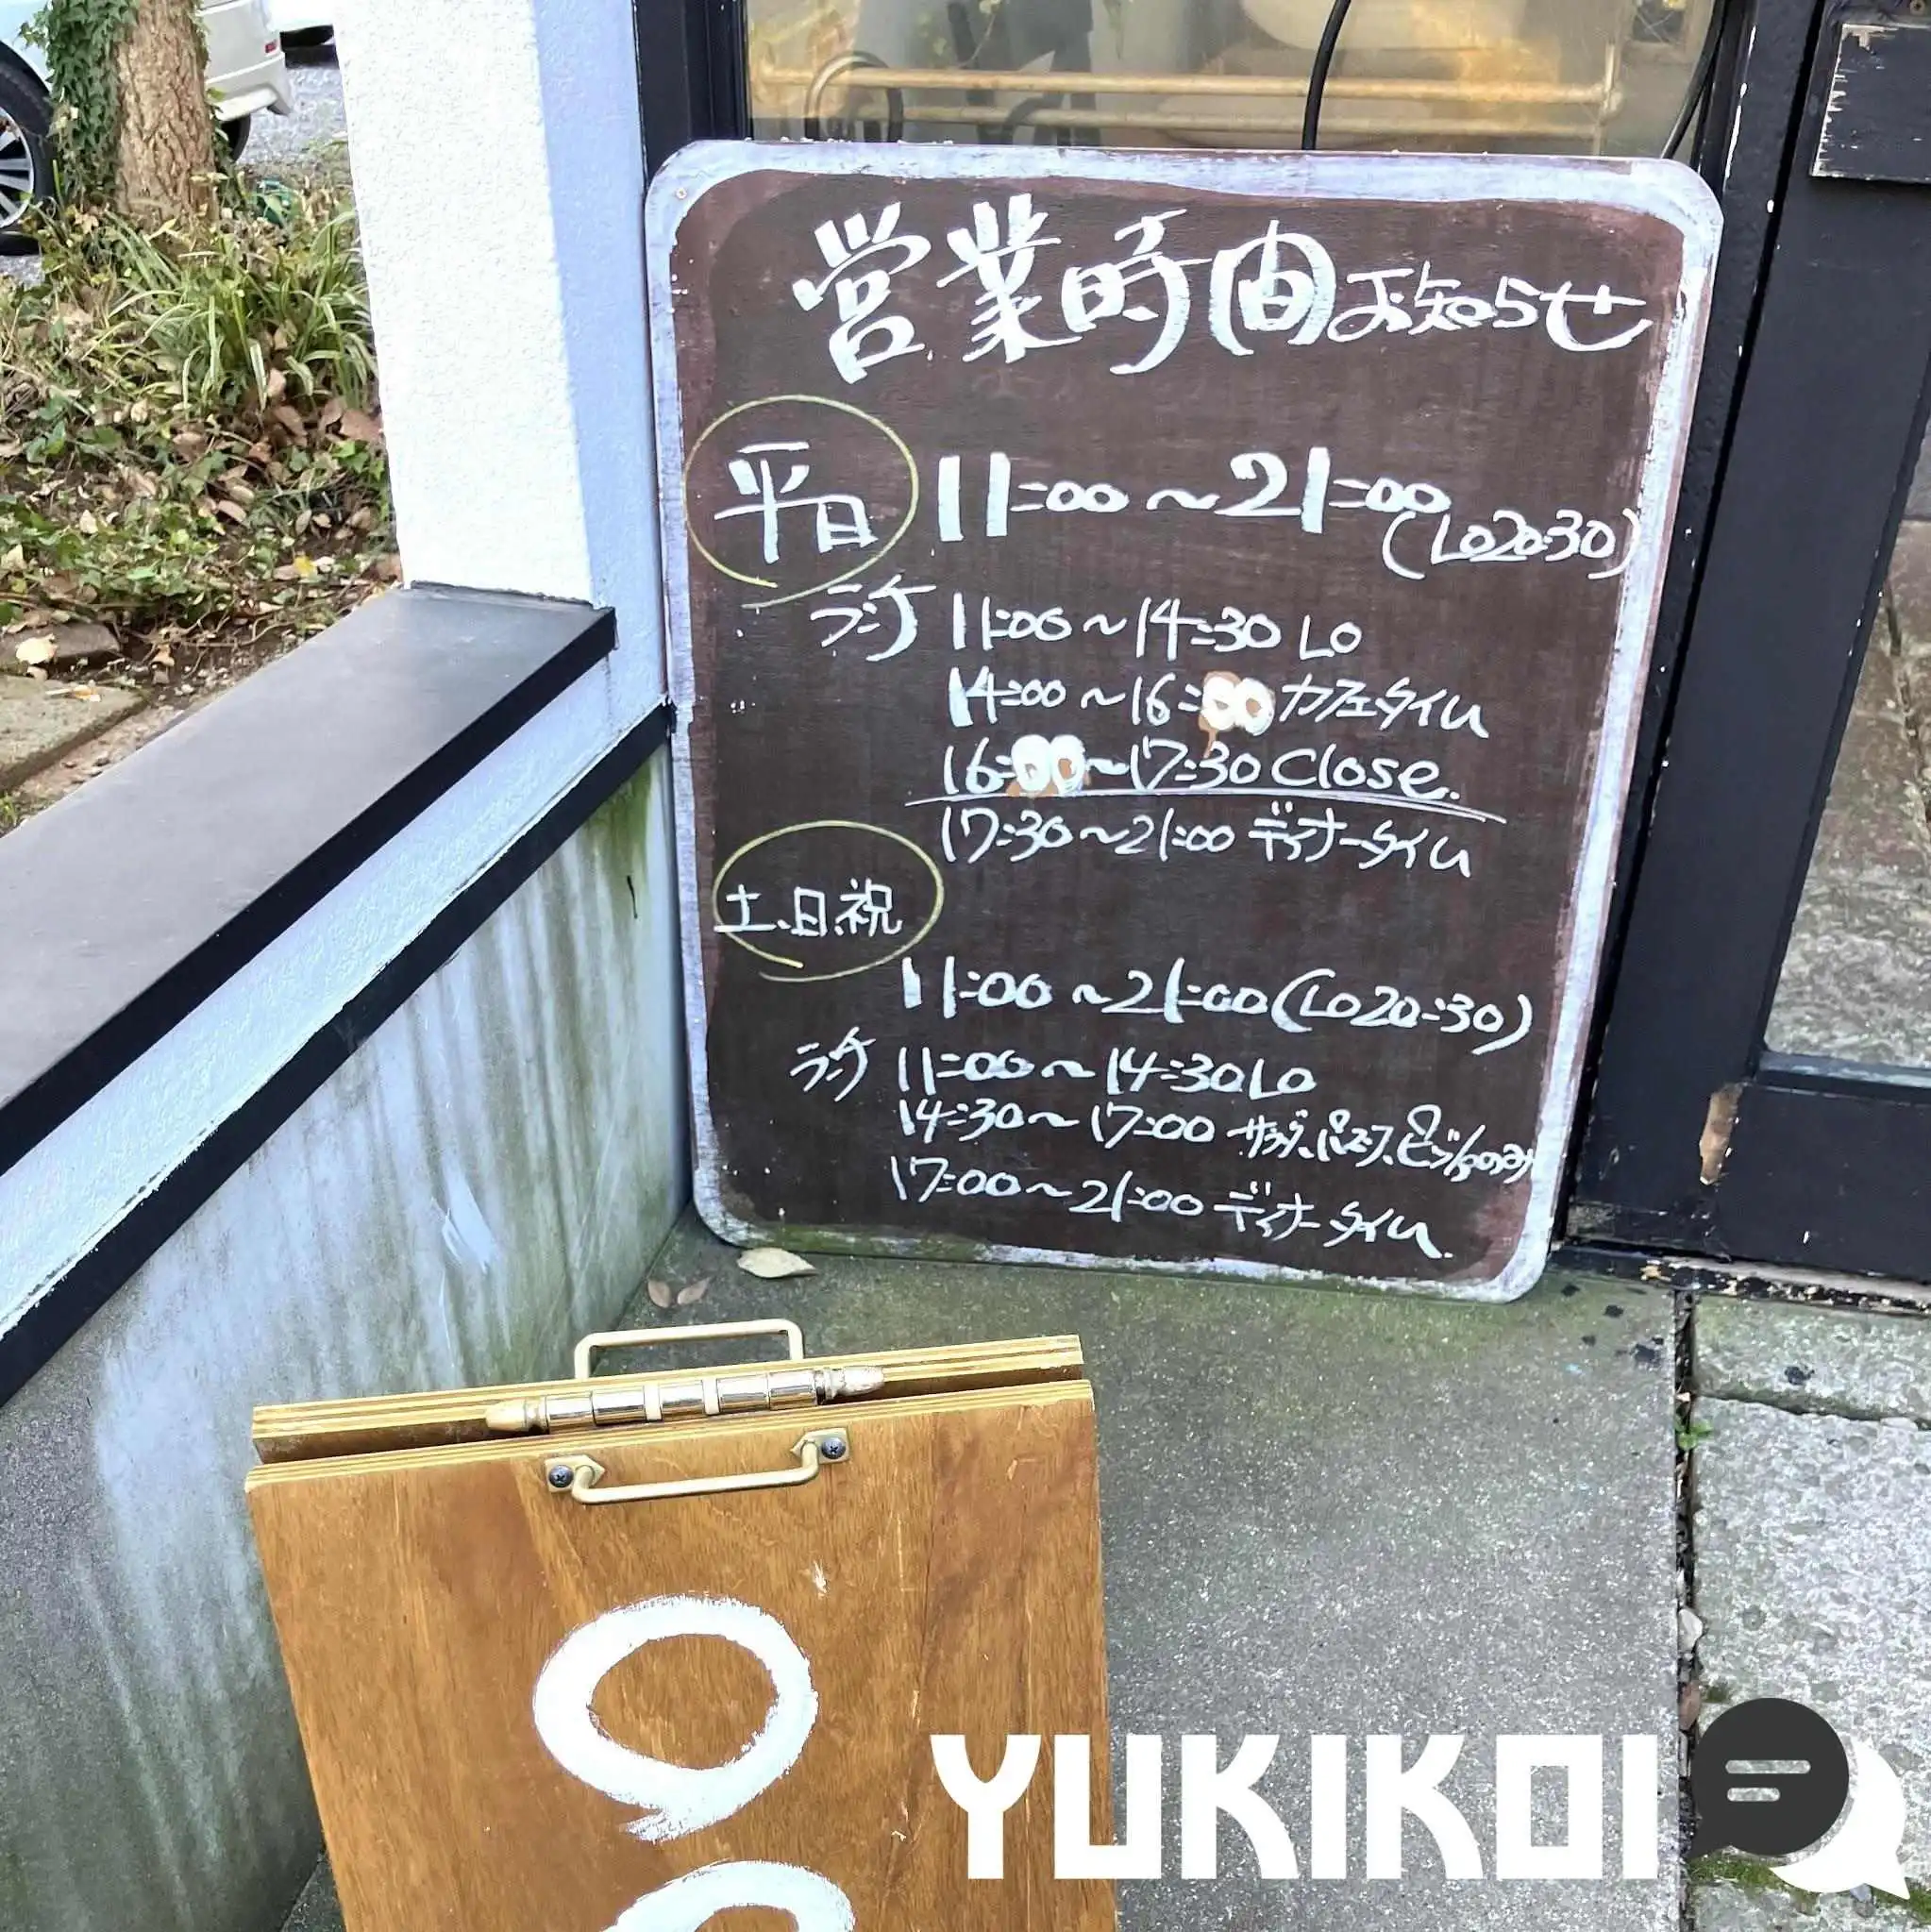 営業時間お知らせ
平日 11:00～21:00
(LO20:30)
ランチ 11:00～14:30 LO
14:00～16:00 カフェタイム
16:00～17:30 Close.
17:30～21:00 ディナータイム
土、日、祝
11:00～21:00(LO20:30)
ランチ 11:00～14:30LO
14:30～17:00 サラダ、パスタ、ピッツァのみ
17:00～21:00 ディナータイム.
YUKIKOI